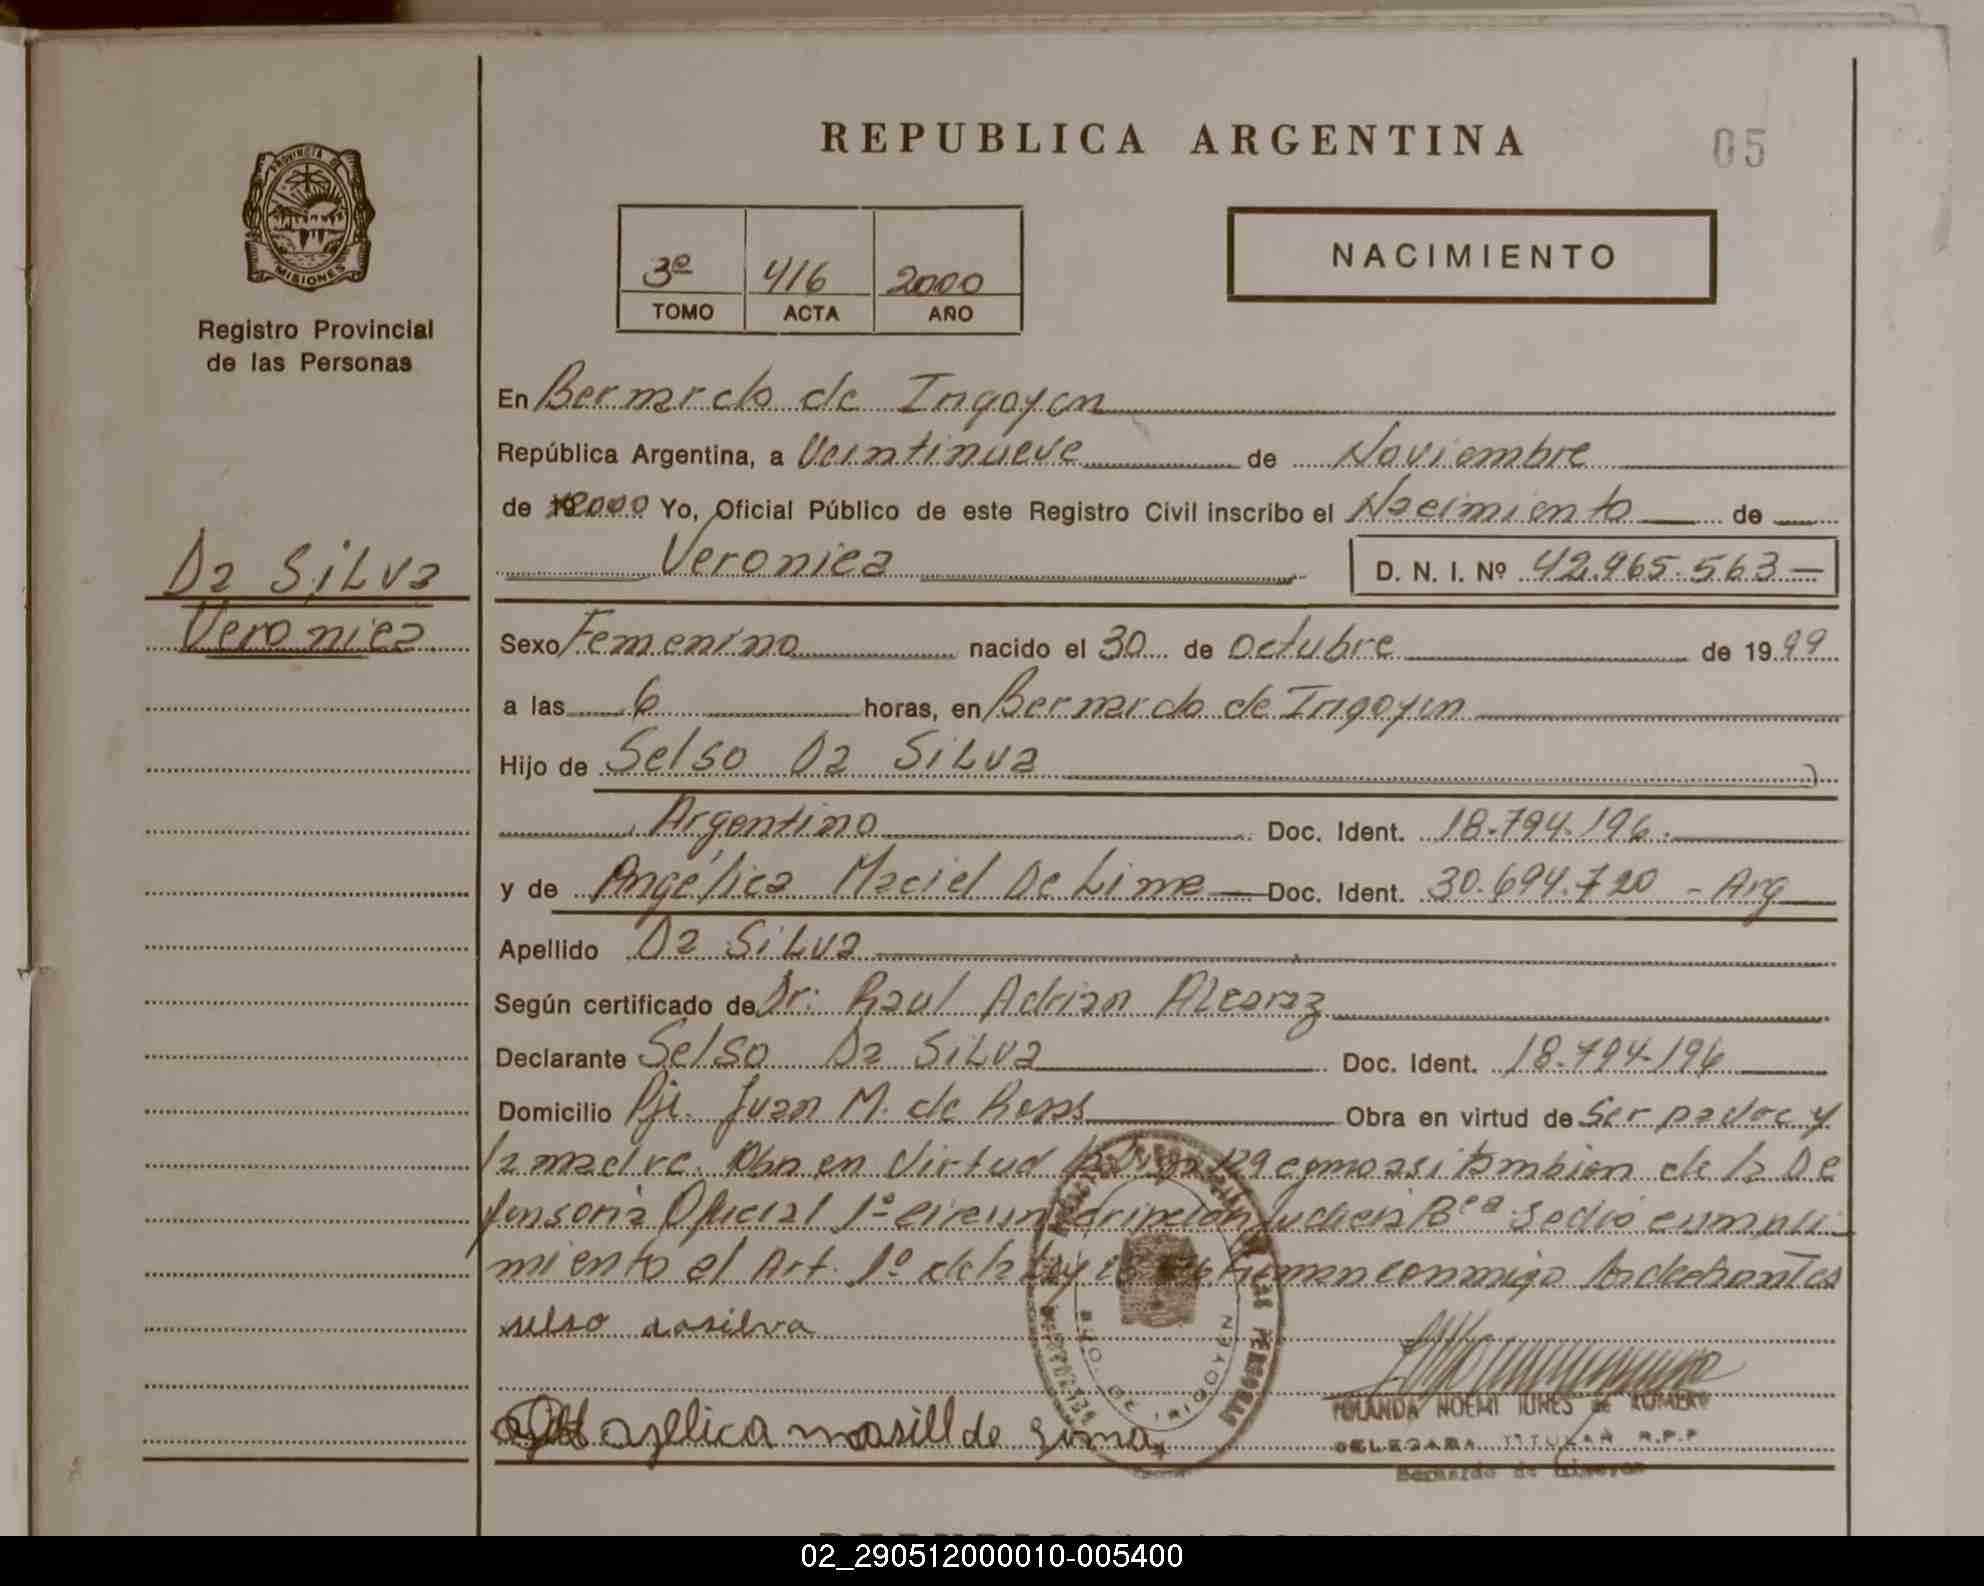 REPUBLICA ARGENTINA
05
PROVINCIA DE
MISIONES
Registro Provincial
de las Personas
3º 416 2000
TOMO ACTA AÑO
NACIMIENTO
En Bernardo de Irigoyen
República Argentina, a Veintinueve de Noviembre
de 2000 Yo, Oficial Público de este Registro Civil inscribo el Nacimiento de
Veronica D. N. I. Nº 42.965.563
Da Silva
Veronica
Sexo Femenino nacido el 30 de Octubre de 1999
a las 6 horas, en Bernardo de Irigoyen
Hijo de Selso Da Silva
Argentino Doc. Ident. 18.794.196.
y de Angélica Maciel De Lima Doc. Ident. 30.694.720 - Arg
Apellido Da Silva
Según certificado de Dr: Raul Adrian Alcaraz
Declarante Selso Da Silva Doc. Ident. 18.794.196
Domicilio Pje. Juan M. de Rosas Obra en virtud de Ser padre y
la madre. Obra en virtud como asi tambien de la De
fensoria Oficial 1º Se dio cumpli
miento el Art. 1º de la Ley firman conmigo los declarantes
selso dasilva
azellica masill de lima
BDO. DE IRIGOYEN
YOLANDA NOEMI de ROMERO
DELEGADA TITULAR R.P.P
Bernardo de Irigoyen
02_290512000010-005400